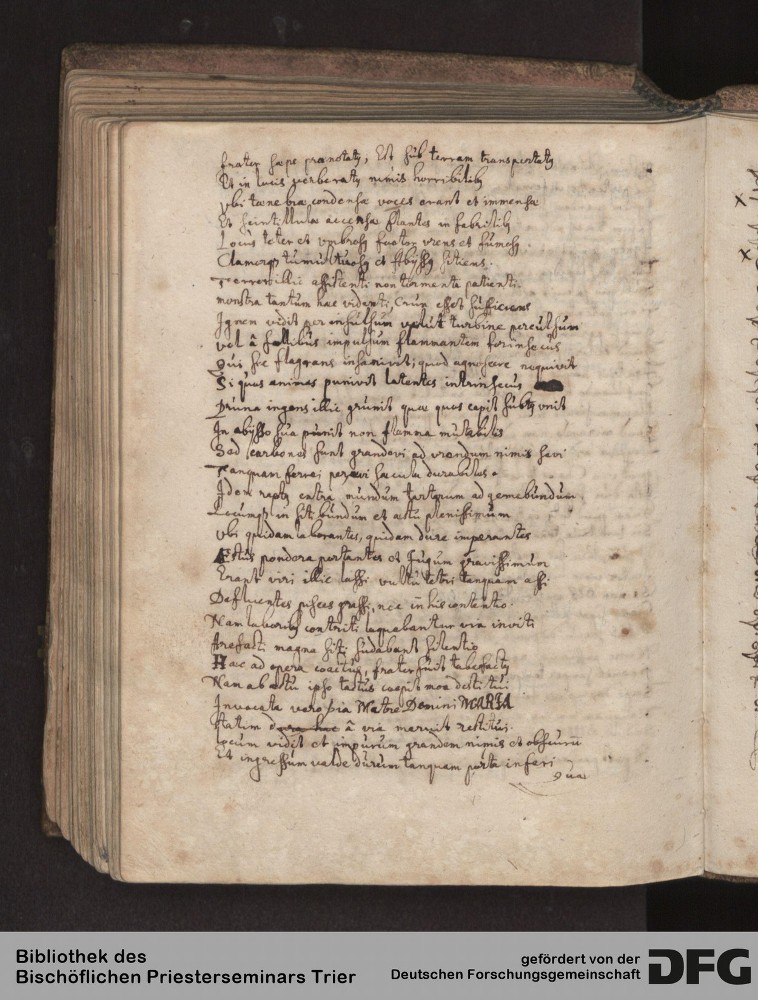 frater sæpe prænotatꝯ, Et sub terram transportatꝯ
Et in locis verberatꝯ nimis horribilibꝯ
vbi tenebræ condensæ voces erant et immensæ
Et scintillulæ accensæ flantes in fabrilibꝯ
Locus teter et vmbrosꝯ fœtor vrens et fumosꝯ.
Clamorqꝫ tumultuosꝯ et Abÿssꝯ sitiens.
Terror illic assistenti non tormenta patienti.
monstra tantum hæc videnti, Crux esset sufficiens
Ignem vidit per insultum velut turbine percussum
vel â follibus impulsum flammantem forinsecus
qui sic flagrans insanivit; quod agnoscere nequivit
Si quas animas punivit latentes intrinsecus
Pruna ingens illic grunit quæ quos capit subtꝯ vnit
In abÿsso sua punit non flamma mutabilis
Sed carbones sunt grandevi ad vrendum nimis sævi
Tanquam ferrei per ævi sæcula durabiles.
Idem raptꝯ extra mundum tartarum ad gemebundum
Locumqꝫ in siti bundum et æstu plenissimum
vbi quidam laborantes, quidam dure imperantes
Æstus pondera portantes et Jugum gravissimum
Erant viri illic lassi vultu tetri tanquam assi
Defluentes pisces grassi, nec in his contentio.
Nam laboribꝯ contriti laquebantur via inviti
Arefacti magna siti sudabant silentio
Hæc ad opera coactus, frater fuit tabefactꝯ
Nam ab æstu ipso tactus cœpit mox destitui
Invocata vero pia Matre Domini MARIA
Statim â via meruit restitui.
Locum vidit et impurum grandem nimis et obscurū
Et ingressum valde durum tanquam porta inferi
quæ
Bibliothek des
Bischöflichen Priesterseminars Trier
gefördert von der
Deutschen Forschungsgemeinschaft
DFG